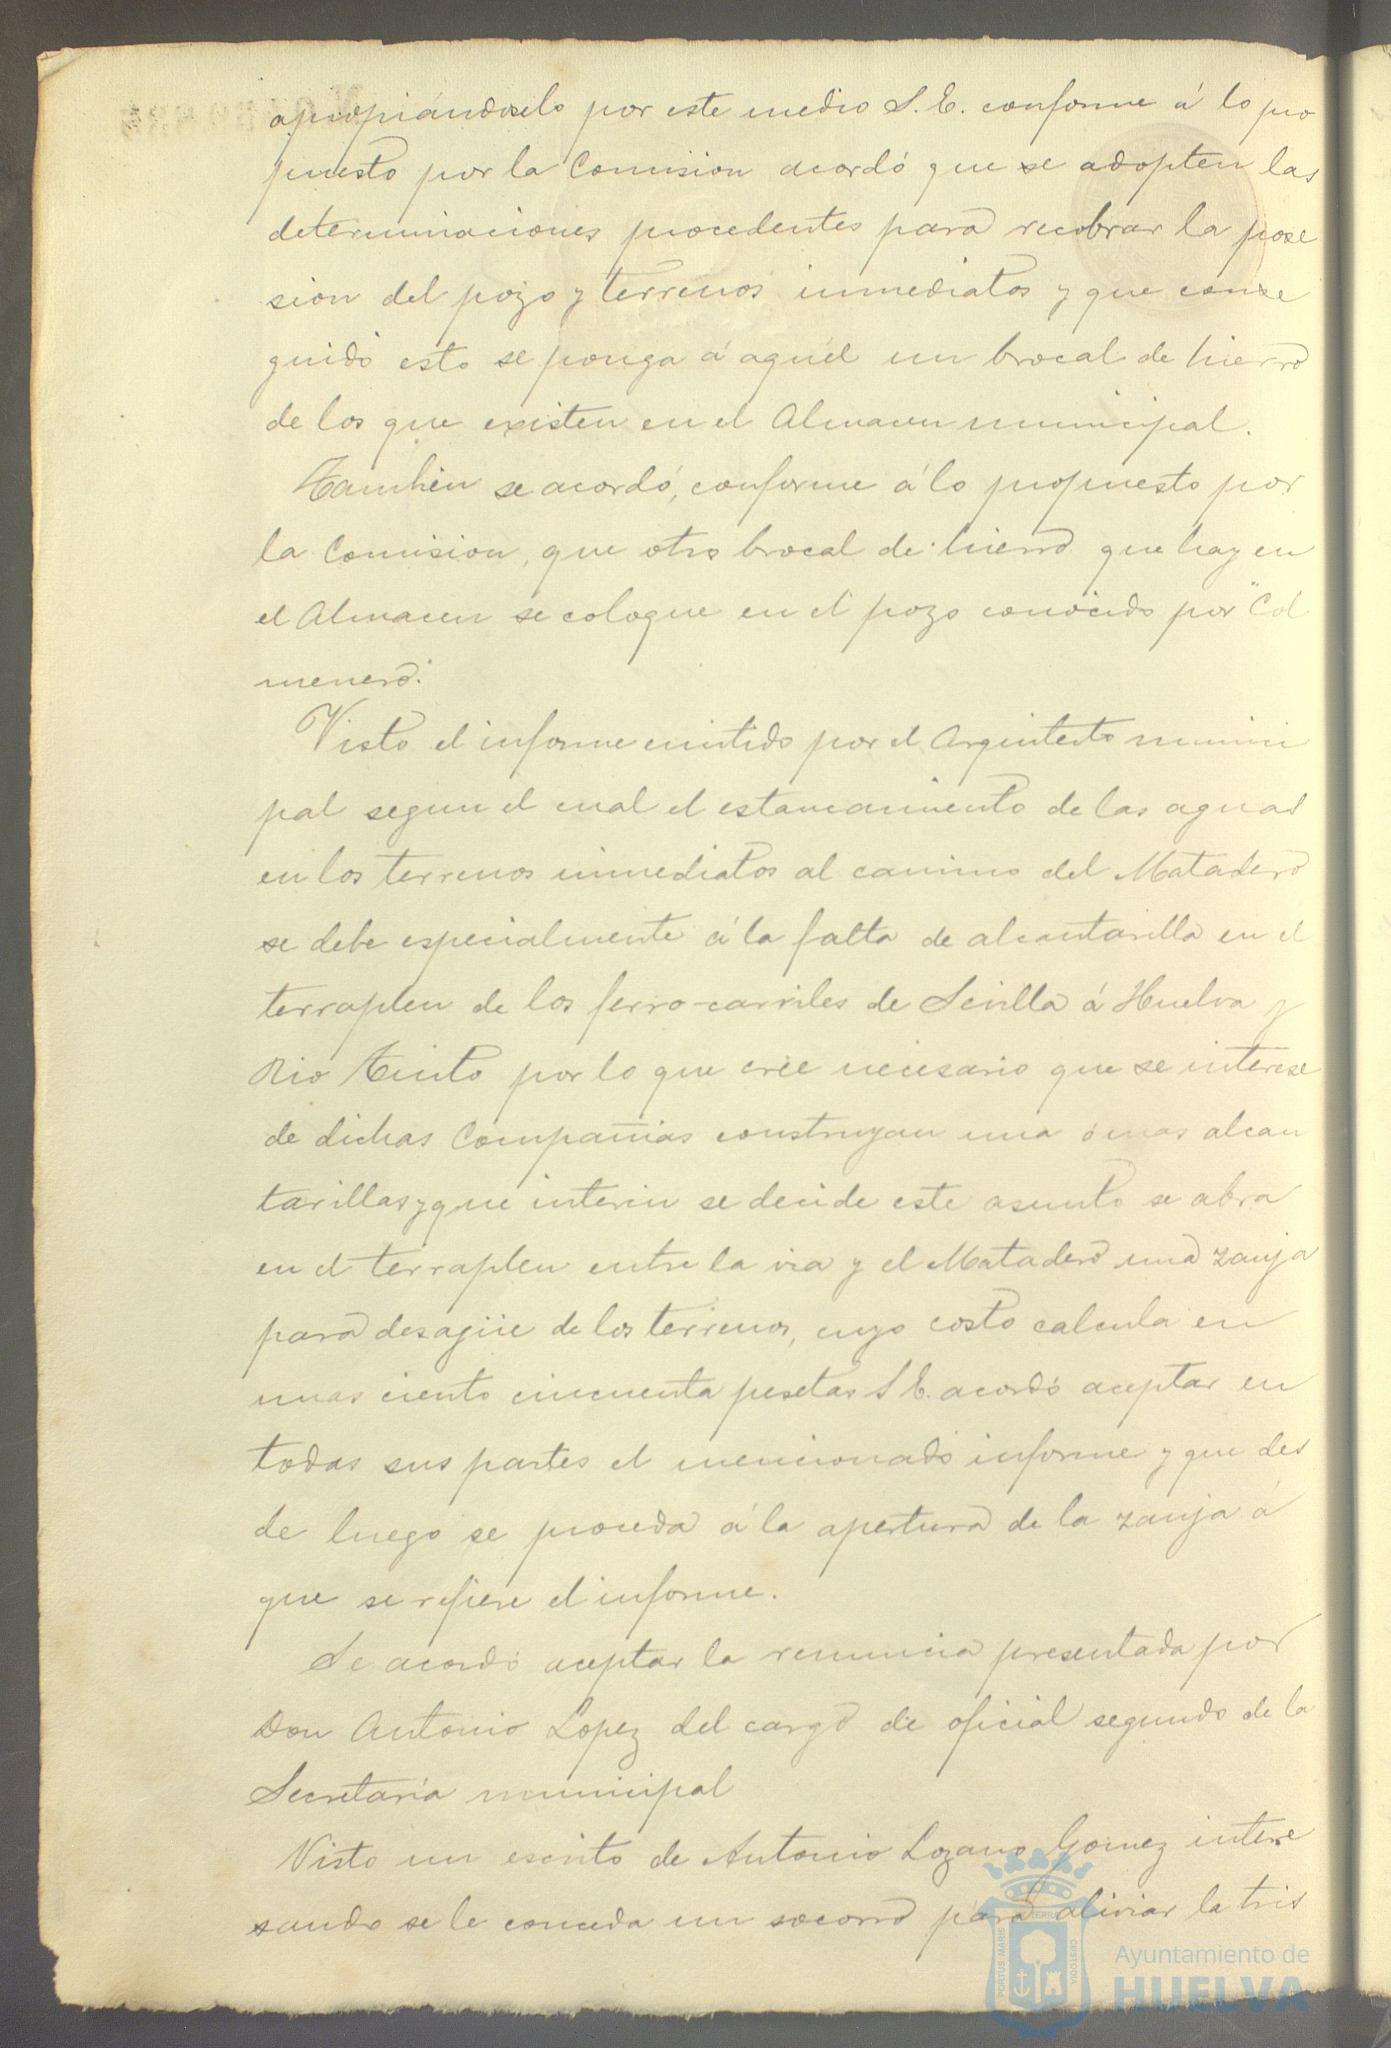 apropiándoselo por este medio S. E. conforme á lo pro
puesto por la Comision acordó que se adopten las
determinaciones procedentes para recobrar la pose
sion del pozo y terrenos inmediatos y que conse
guido esto se ponga á aquél un brocal de hierro
de los que existen en el Almacen municipal.
Tambien se acordó, conforme á lo propuesto por
la Comision, que otro brocal de hierro que hay en
el Almacen se coloque en el pozo conocido por "Col
menero."
Visto el informe emitido por el Arquitecto munici
pal segun el cual el estancamiento de las aguas
en los terrenos inmediatos al camino del Matadero
se debe especialmente á la falta de alcantarilla en el
terraplen de los ferro-carriles de Sevilla á Huelva y
Rio Tinto por lo que cree necesario que se interese
de dichas Compañias construyan una ó mas alcan
tarillas y que interin se decide este asunto se abra
en el terraplen entre la via y el Matadero una zanja
para desagüe de los terrenos, cuyo costo calcula en
unas ciento cincuenta pesetas S. E. acordó aceptar en
todas sus partes el mencionado informe y que des
de luego se proceda á la apertura de la zanja á
que se refiere el informe.
Se acordó aceptar la renuncia presentada por
Don Antonio Lopez del cargo de oficial segundo de la
Secretaria municipal
Visto un escrito de Antonio Lozano Gomez intere
sando se le conceda un socorro para aliviar la tris
PORTUS MARIS
TERRÆ
CUSTODIA
Ayuntamiento de
HUELVA